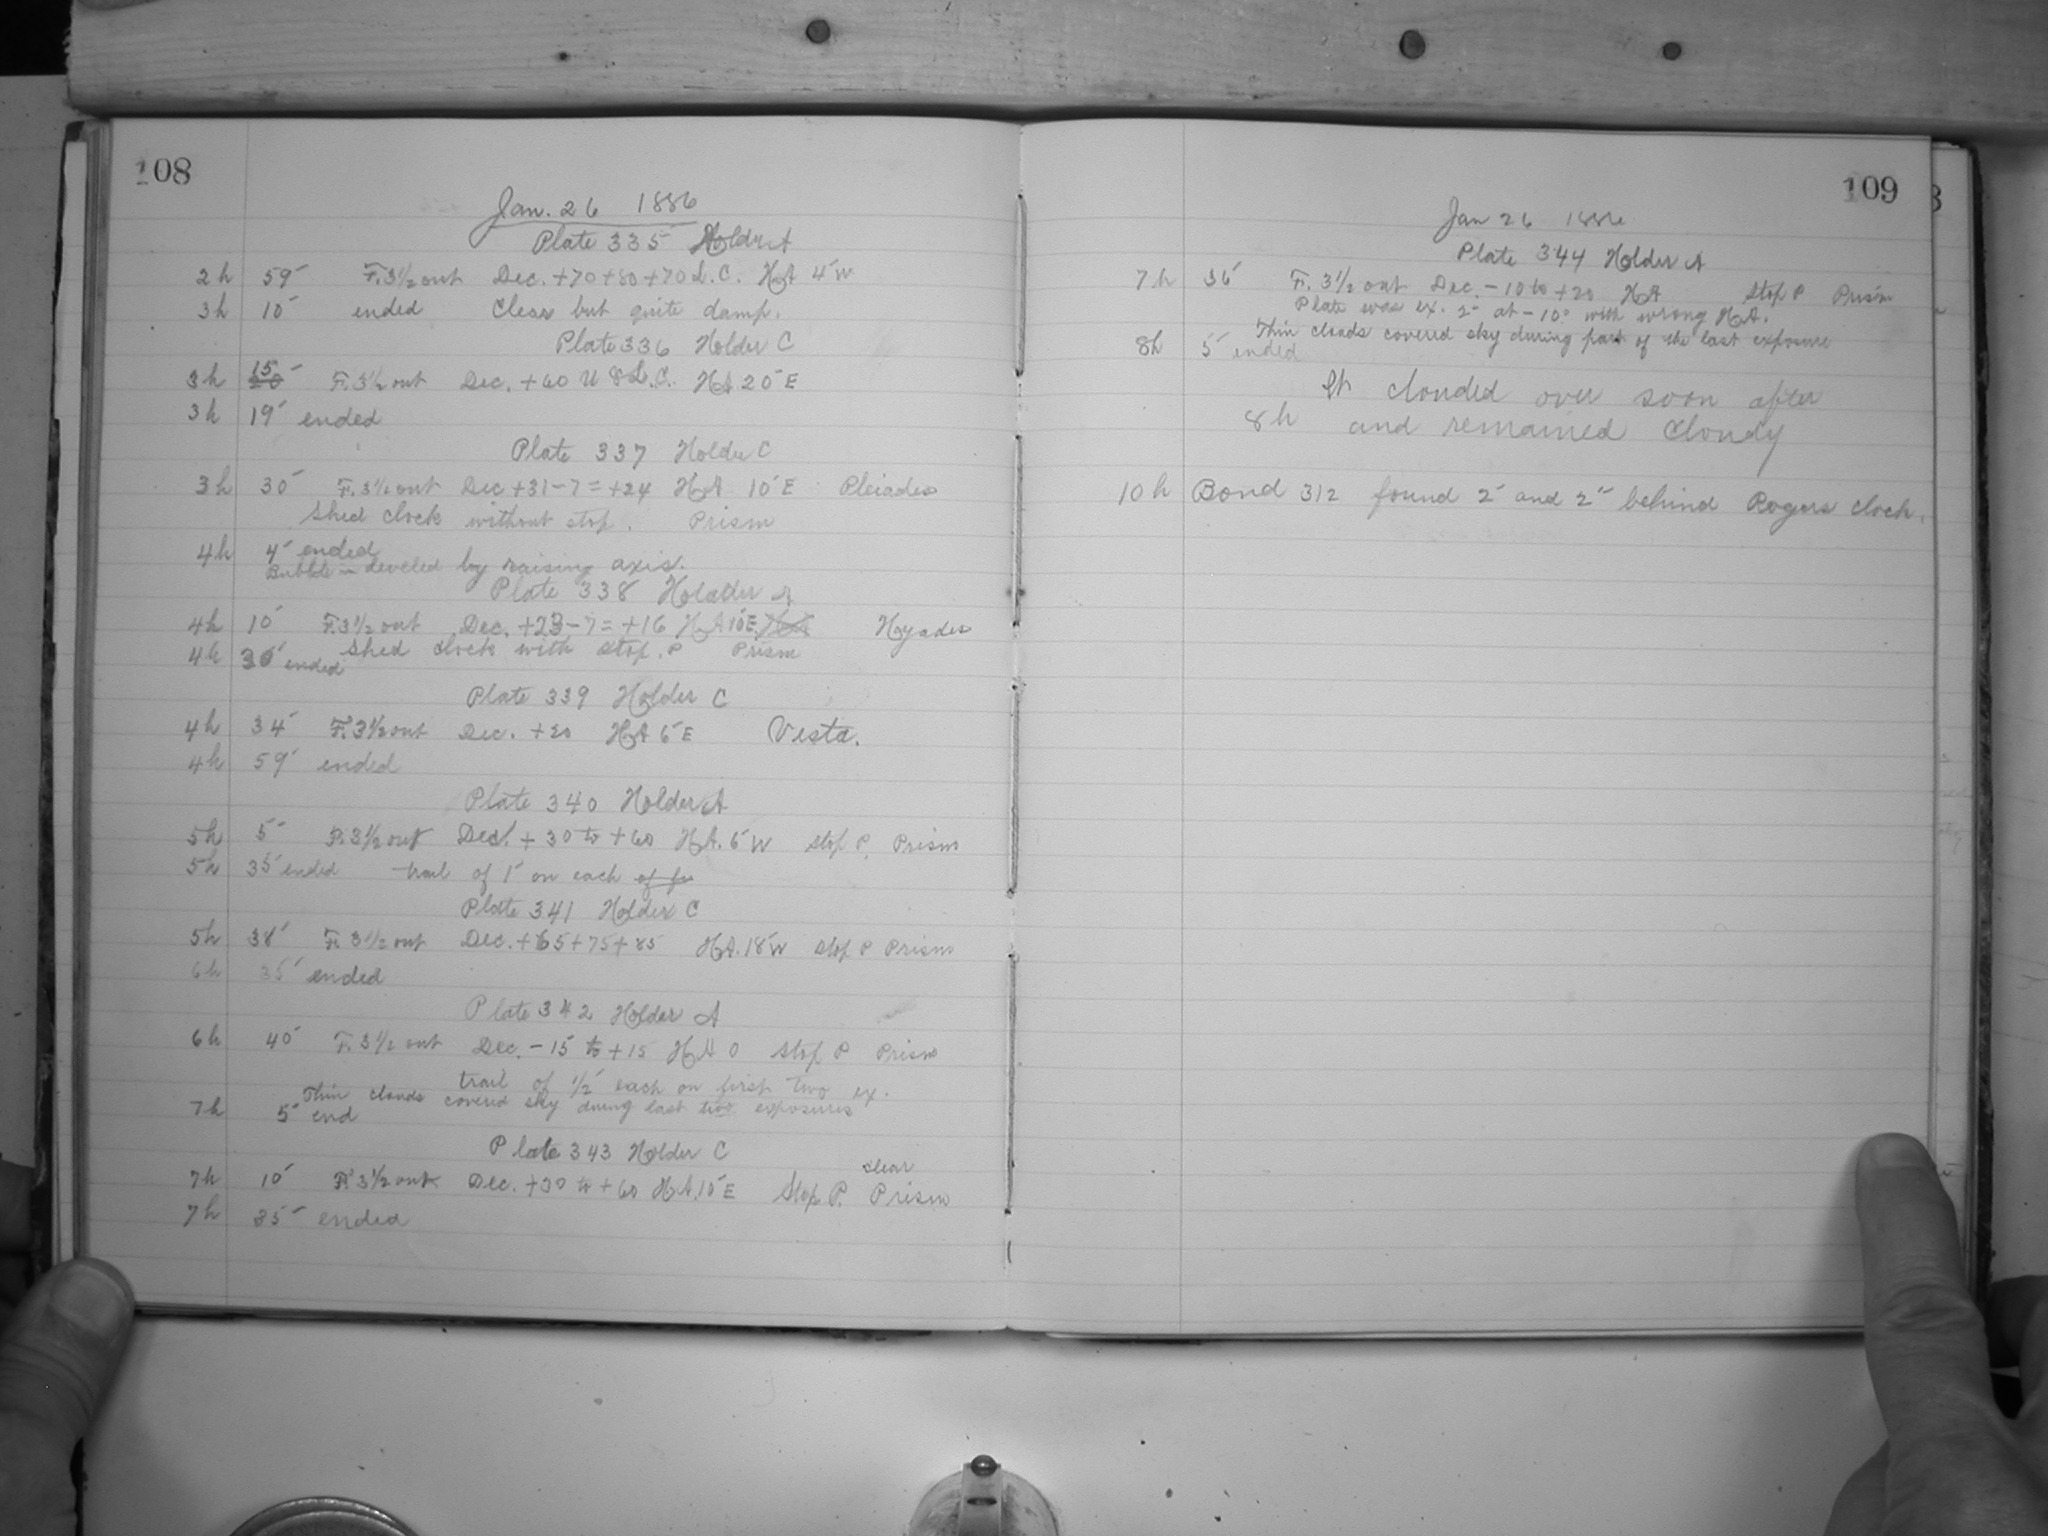 108
Jan. 26 1886
Plate 335 Holder A
2h 59' F. 3 1/2 out Dec. +70+80+70 L.C. HA 4'W
3h 10' ended Clear but quite damp.
Plate 336 Holder C
3h 15' F. 3 1/2 out Dec. +60 U & L.C. HA 20'E
3h 19' ended
Plate 337 Holder C
3h 30' F. 3 1/2 out Dec +31-7=+24 HA 10'E Pleiades
Shed clock without stop. Prism
4h 4' ended
Bubble leveled by raising axis.
Plate 338 Holder A
4h 10' F. 3 1/2 out Dec. +23-7=+16 HA 10'E Hyades
Shed clock with stop. P Prism
4h 30' ended
Plate 339 Holder C
4h 34' F. 3 1/2 out Dec. +20 HA 6'E Vesta.
4h 59' ended
Plate 340 Holder A
5h 5' F. 3 1/2 out Dec. +30 to +60 HA. 6'W stop P. Prism
5h 35' ended trail of 1' on each of
Plate 341 Holder C
5h 38' F. 3 1/2 out Dec. +65+75+85 HA. 18'W stop P Prism
6h 35' ended
Plate 342 Holder A
6h 40' F. 3 1/2 out Dec. -15 to +15 HA 0 stop P Prism
trail of 1/2' each on first two ex.
Thin clouds covered sky during last two exposures
7h 5' end
Plate 343 Holder C
clear
7h 10' F. 3 1/2 out Dec. +30 to +60 HA. 10'E Stop P. Prism
7h 35' ended
109
Jan 26 1886
Plate 344 Holder A
7h 36' F. 3 1/2 out Dec. -10 to +20 HA Stop P Prism
Plate was ex. 2' at -10° with wrong HA.
Thin clouds covered sky during part of the last exposure
8h 5' ended
It clouded over soon after
8h and remained cloudy
10h Bond 312 found 2' and 2'' behind Rogers clock.